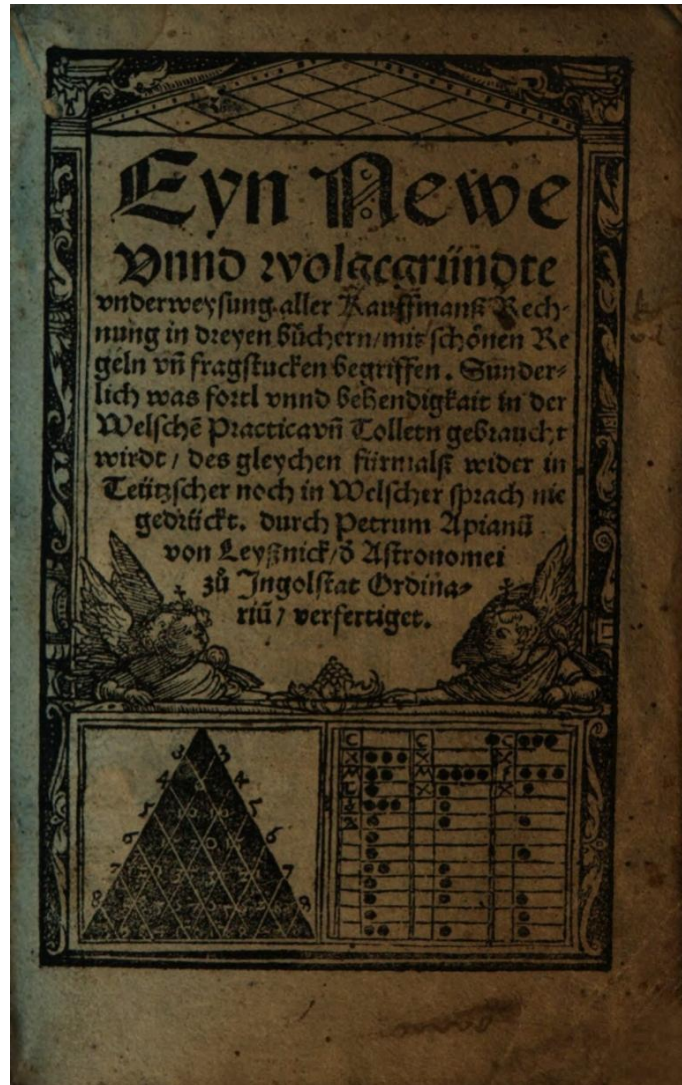 Eyn Newe
Vnnd wolgegründte
vnderweysung aller Kauffmanß Rech-
nung in dreyen büchern/ mit schönen Re
geln vñ fragstucken begriffen. Sunder-
lich was fortl vnnd behendigkait in der
Welschẽ Practica vñ Tolletn gebraucht
wirdt/ des gleychen fürmalß wider in
Teützscher noch in Welscher sprach nie
gedrückt. durch Petrum Apianũ
von Leyßnick/ d̃ Astronomei
zů Jngolstat Ordina-
riũ/ verfertiget.
3 3
4 4
5 5
6 6
7 7
8 9
C C C